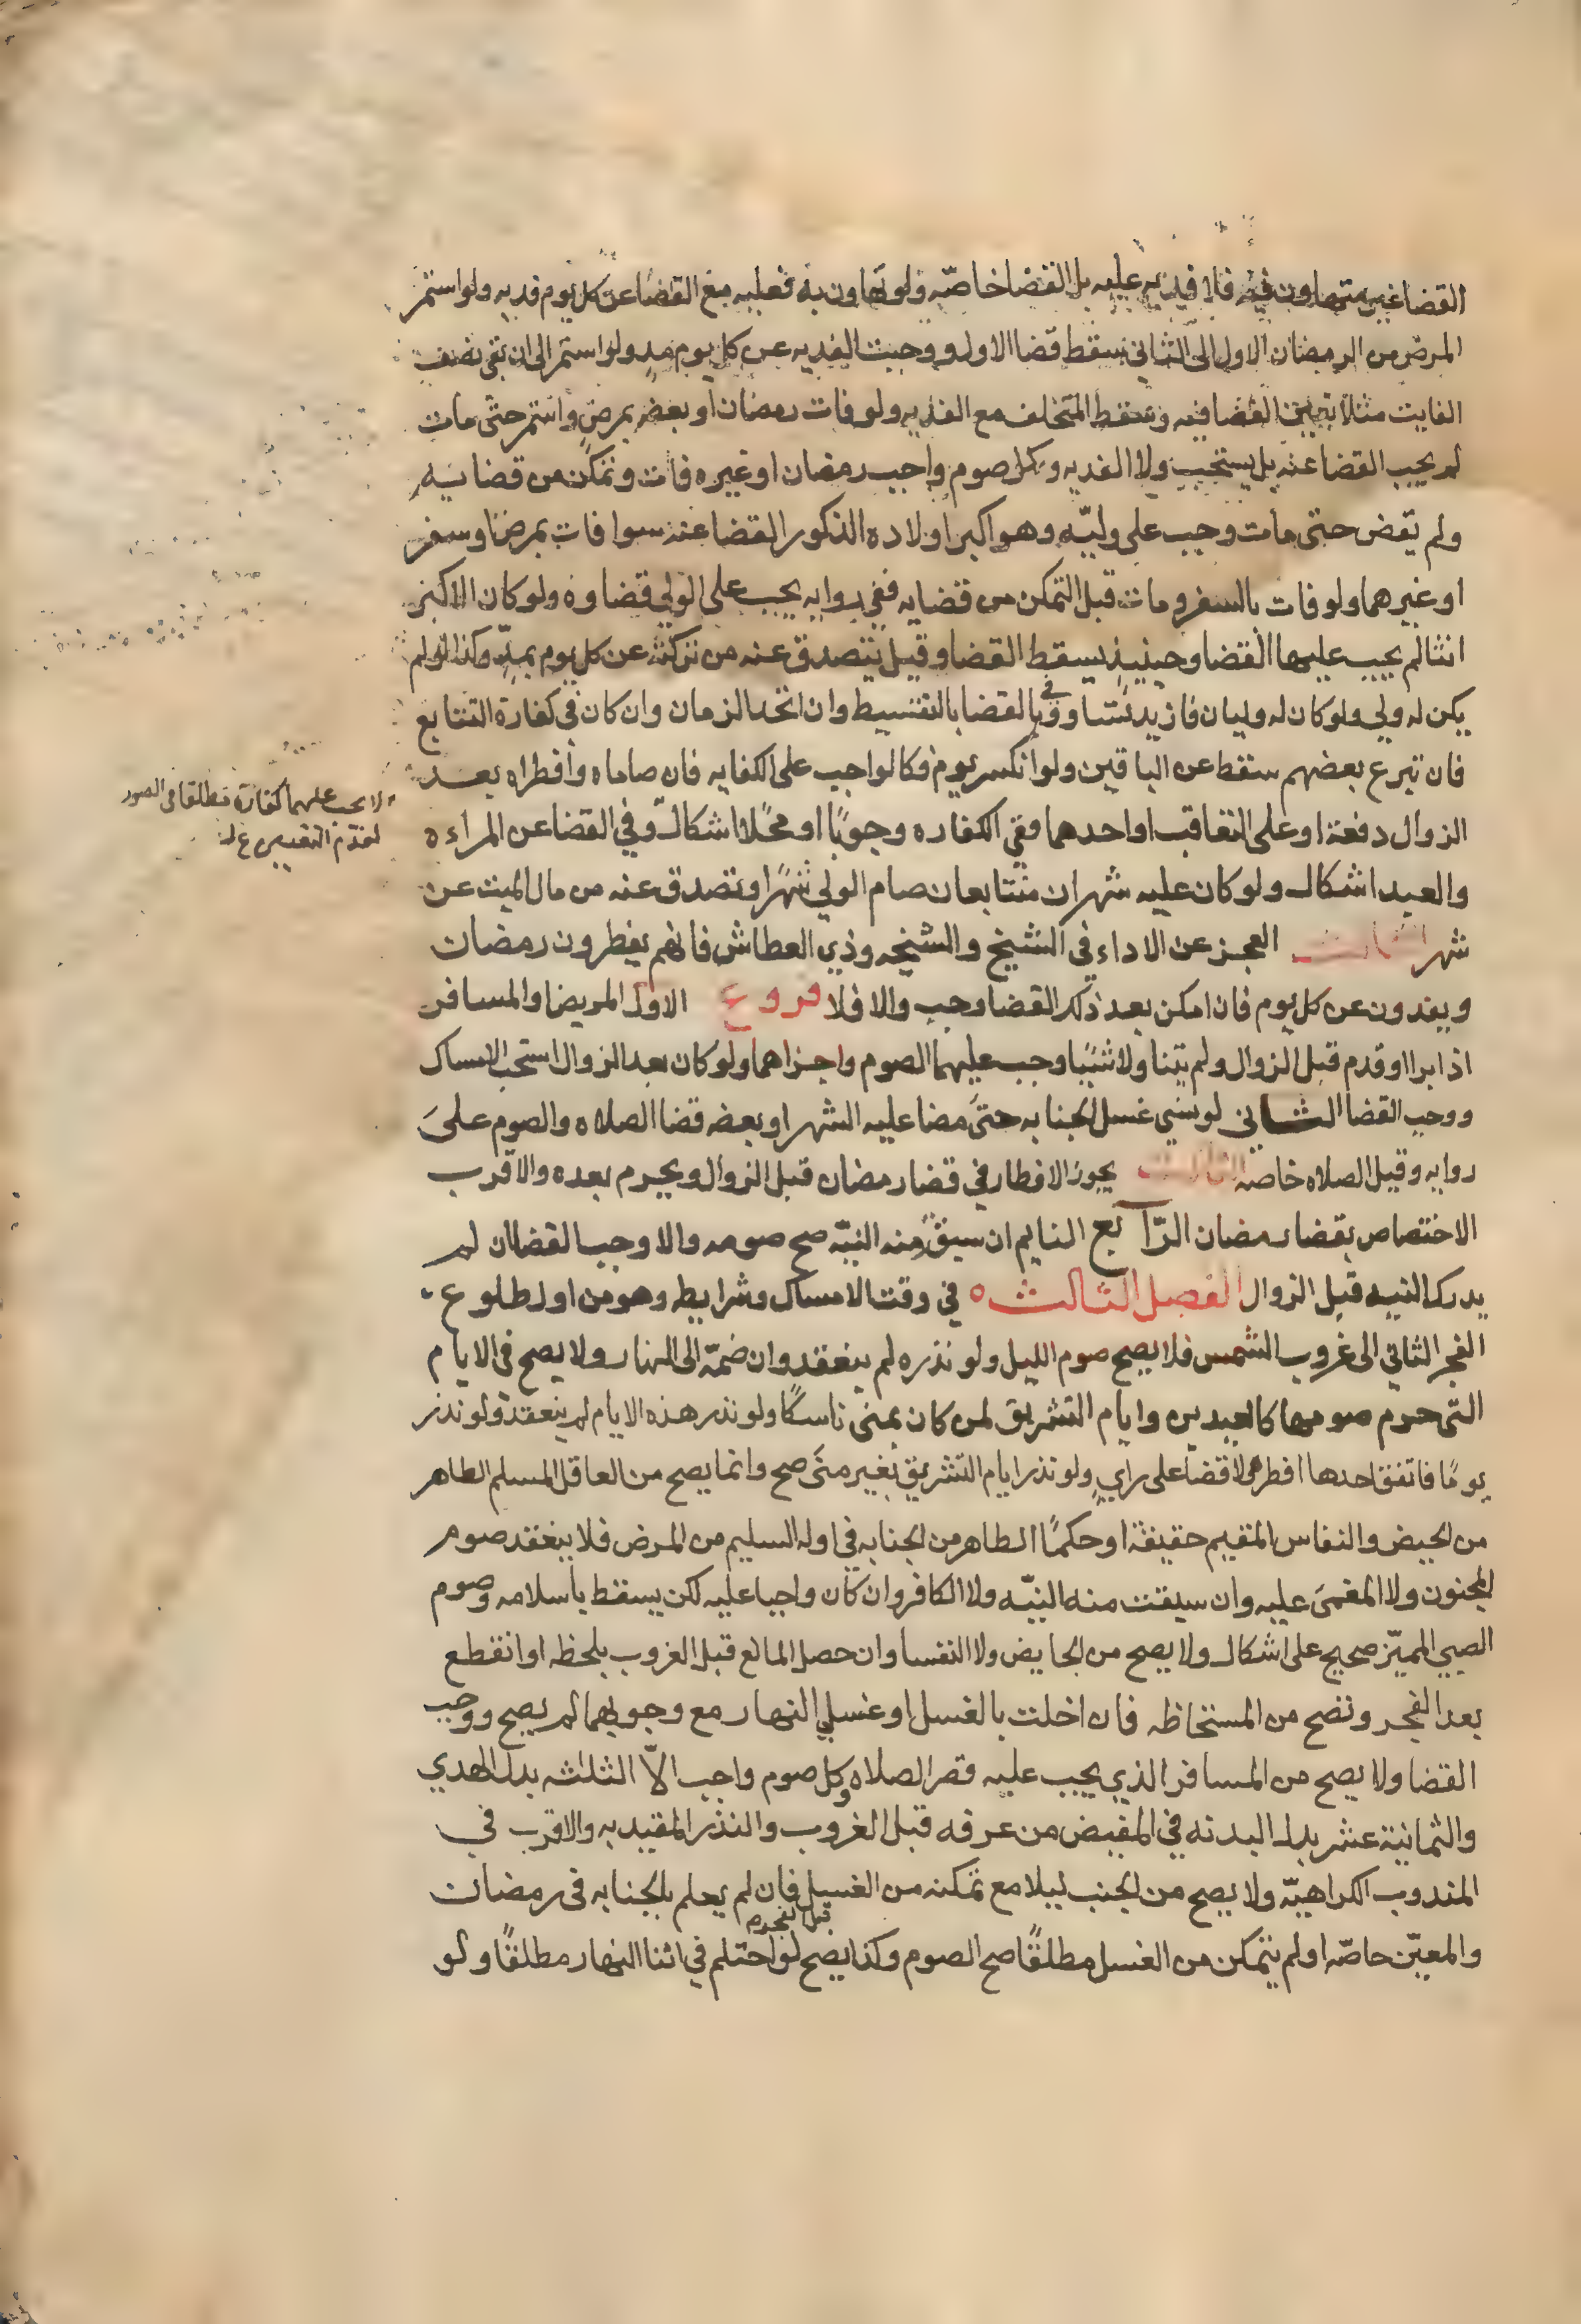 القضا غير متهاون فيه فلا فديه عليه بل القضا خاصّه ولو تهاون به فعليه مع القضا عن كل يوم فديه ولو استمر
المرض من الرمضان الاول الى الثاني سقط قضا الاول ووجبت الفديه عن كل يوم مد ولو استمر الى ان بقى نصف
الفايت مثلا تعين القضا فيه وسقط المتخلف مع الفديه ولو فات رمضان او بعضه بمرض واستمر حتى مات
لم يجب القضا عنه بل يستحب ولا الفديه وكل صوم واجب رمضان او غيره فات وتمكن من قضائه
ولم يقض حتى مات وجب على وليّه وهو اكبر اولاده الذكور القضا عنه سوا فات بمرض او سفر
او غيرهما ولو فات بالسفر ومات قبل التمكن من قضايه ففي روايه يجب على الولي قضاوه ولو كان الاكبر
انثا لم يجب عليها القضا وحينيذ يسقط القضا وقيل يتصدق عنه من تركته عن كل يوم بمدّ وكذا لو لم
يكن له ولي ولو كان له وليان فازيد تساووا في القضا بالتقسيط وان اتحد الزمان وان كان في كفارة التتابع
فان تبرع بعضهم سقط عن الباقين ولو انكسر يوم فكالواجب على الكفايه فان صاماه وافطراه بعد
الزوال دفعة او على التعاقب او احدهما ففي الكفاره وجوبًا او محلا اشكال وفي القضا عن المراءه
والعبد اشكال ولو كان عليه شهران متتابعان صام الولي شهرًا وتصدق عنه من مال الميت عن
شهر الثالث العجز عن الاداء في الشيخ والشيخه وذي العطاش فانهم يفطرون رمضان
ويفدون عن كل يوم فان امكن بعد ذلك القضا وجب والا فلا فروع الاول المريض والمسافر
اذا برا او قدم قبل الزوال ولم يتناولا شيئا وجب عليهما الصوم واجزاهما ولو كان بعد الزوال استحب الامساك
ووجب القضا الثاني لو نسي غسل الجنابه حتى مضا عليه الشهر او بعضه قضا الصلاه والصوم على
روايه وقيل الصلاه خاصه الثالث يجوز الافطار في قضا رمضان قبل الزوال ويحرم بعده والاقرب
الاختصاص بقضا رمضان الرابع النايم ان سبقت منه النيّه صح صومه والا وجب القضا ان لم
يدرك النيه قبل الزوال الفصل الثالث في وقت الامساك وشرايطه وهو من اول طلوع
الفجر الثاني الى غروب الشمس فلا يصح صوم الليل ولو نذره لم ينعقد وان ضمّه الى النهار ولا يصح في الايام
التي حرم صومها كالعيدين وايام التشريق لمن كان بمنى ناسكًا ولو نذر هذه الايام لم ينعقد ولو نذر
يومًا فاتفق احدها افطر ولا قضا على راي ولو نذر ايام التشريق بغير منى صح وانما يصح من العاقل المسلم الطاهر
من الحيض والنفاس المقيم حقيقة او حكمًا الطاهر من الجنابه في اوله السليم من المرض فلا ينعقد صوم
المجنون ولا المغمى عليه وان سبقت منه النيّه ولا الكافر وان كان واجبا عليه لكن يسقط باسلامه وصوم
الصبي المميّز صحيح على اشكال ولا يصح من الحايض ولا النفسا وان حصل المانع قبل الغروب بلحظه او انقطع
بعد الفجر وتصح من المستحاظه فان اخلت بالغسل او غسلي النهار مع وجوبهما لم يصح ووجب
القضا ولا يصح من المسافر الذي يجب عليه قصر الصلاه وكل صوم واجب الاّ الثلاثه بدل الهدي
والثمانية عشر بدل البدنه في المفيض من عرفه قبل الغروب والنذر المقيد به والاقرب في
المندوب الكراهيّه ولا يصح من الجنب ليلا مع تمكنه من الغسل فان لم يعلم بالجنابه في رمضان
والمعيّن خاصّه او لم يتمكن من الغسل قبل الفجر مطلقًا صح الصوم وكذا يصح لو احتلم في اثنا النهار مطلقًا ولو
لا يجب عليهما كفارة مطلقا في الصور